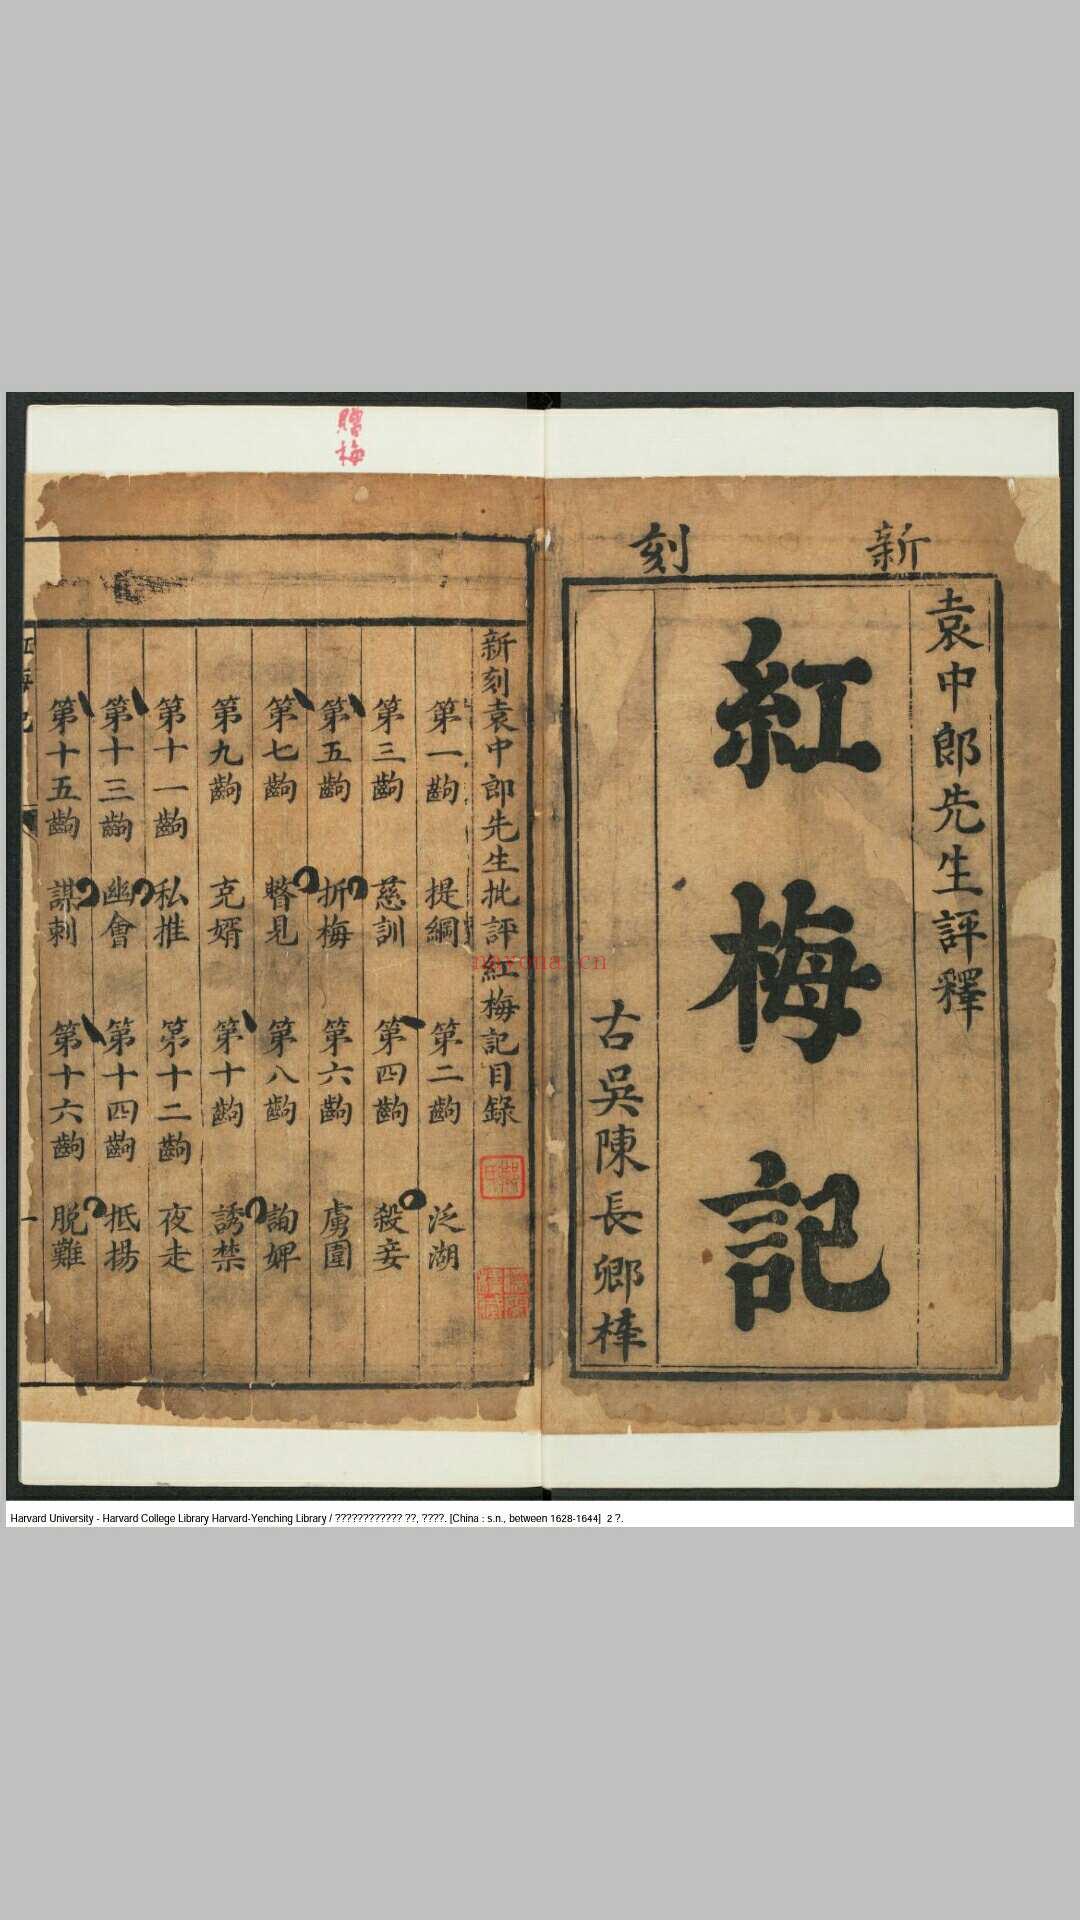 新刻
袁中郎先生評釋
紅梅記
古吳陳長卿梓
贈梅
新刻袁中郎先生批評紅梅記目錄
第一齣 提綱 第二齣 泛湖
第三齣 慈訓 第四齣 殺妾
第五齣 折梅 第六齣 虜圍
第七齣 瞥見 第八齣 詢婢
第九齣 克婿 第十齣 誘禁
第十一齣 私推 第十二齣 夜走
第十三齣 幽會 第十四齣 抵揚
第十五齣 謀刺 第十六齣 脱難
紅梅記
一
nayona.cn
Harvard University - Harvard College Library Harvard-Yenching Library / ???????????? ??, ????. [China : s.n., between 1628-1644] 2 ?.